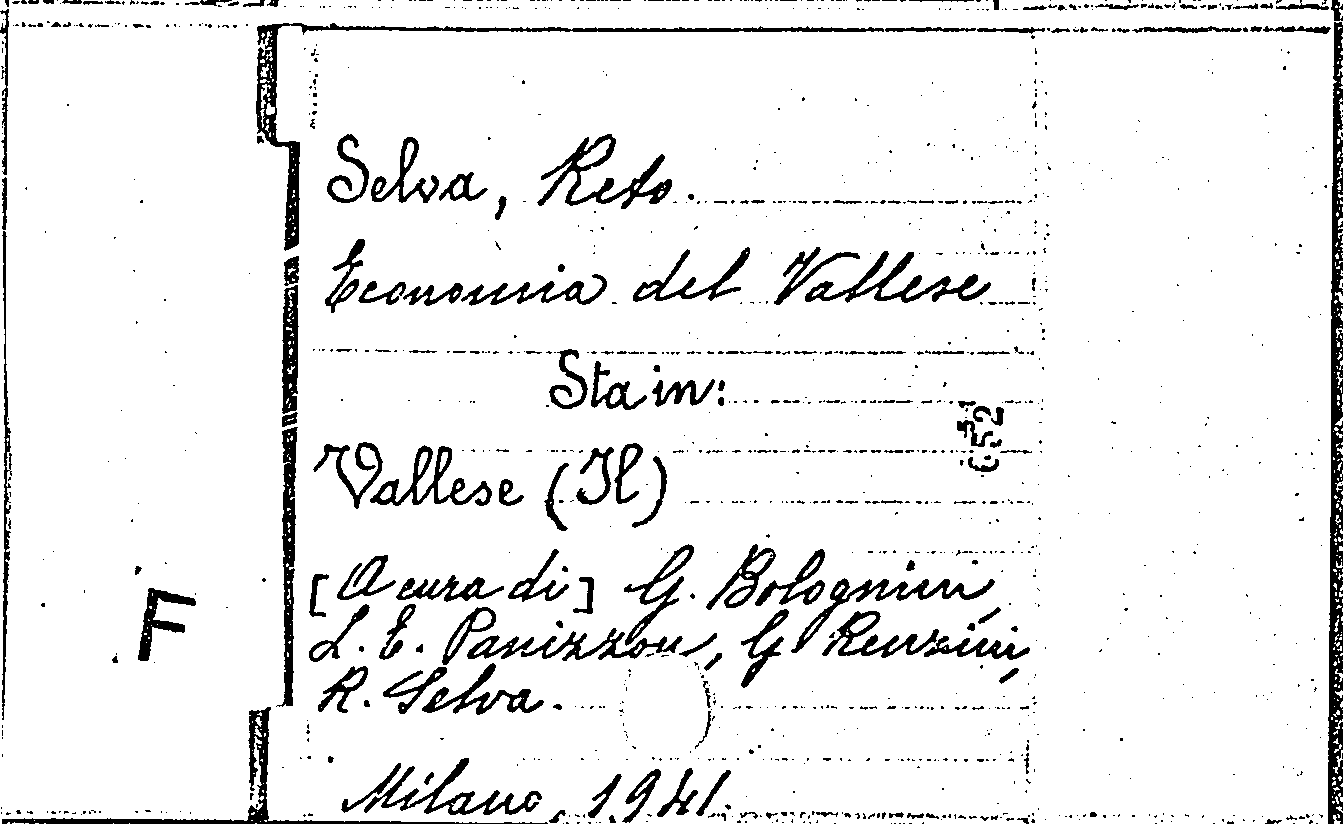 Selva, Reto.
Economia del Vallese
Sta in:
Vallese (Il)
[A cura di] G. Bolognini,
L. E. Panizzon, G Renzini,
R. Selva.
F
Milano, 1941.